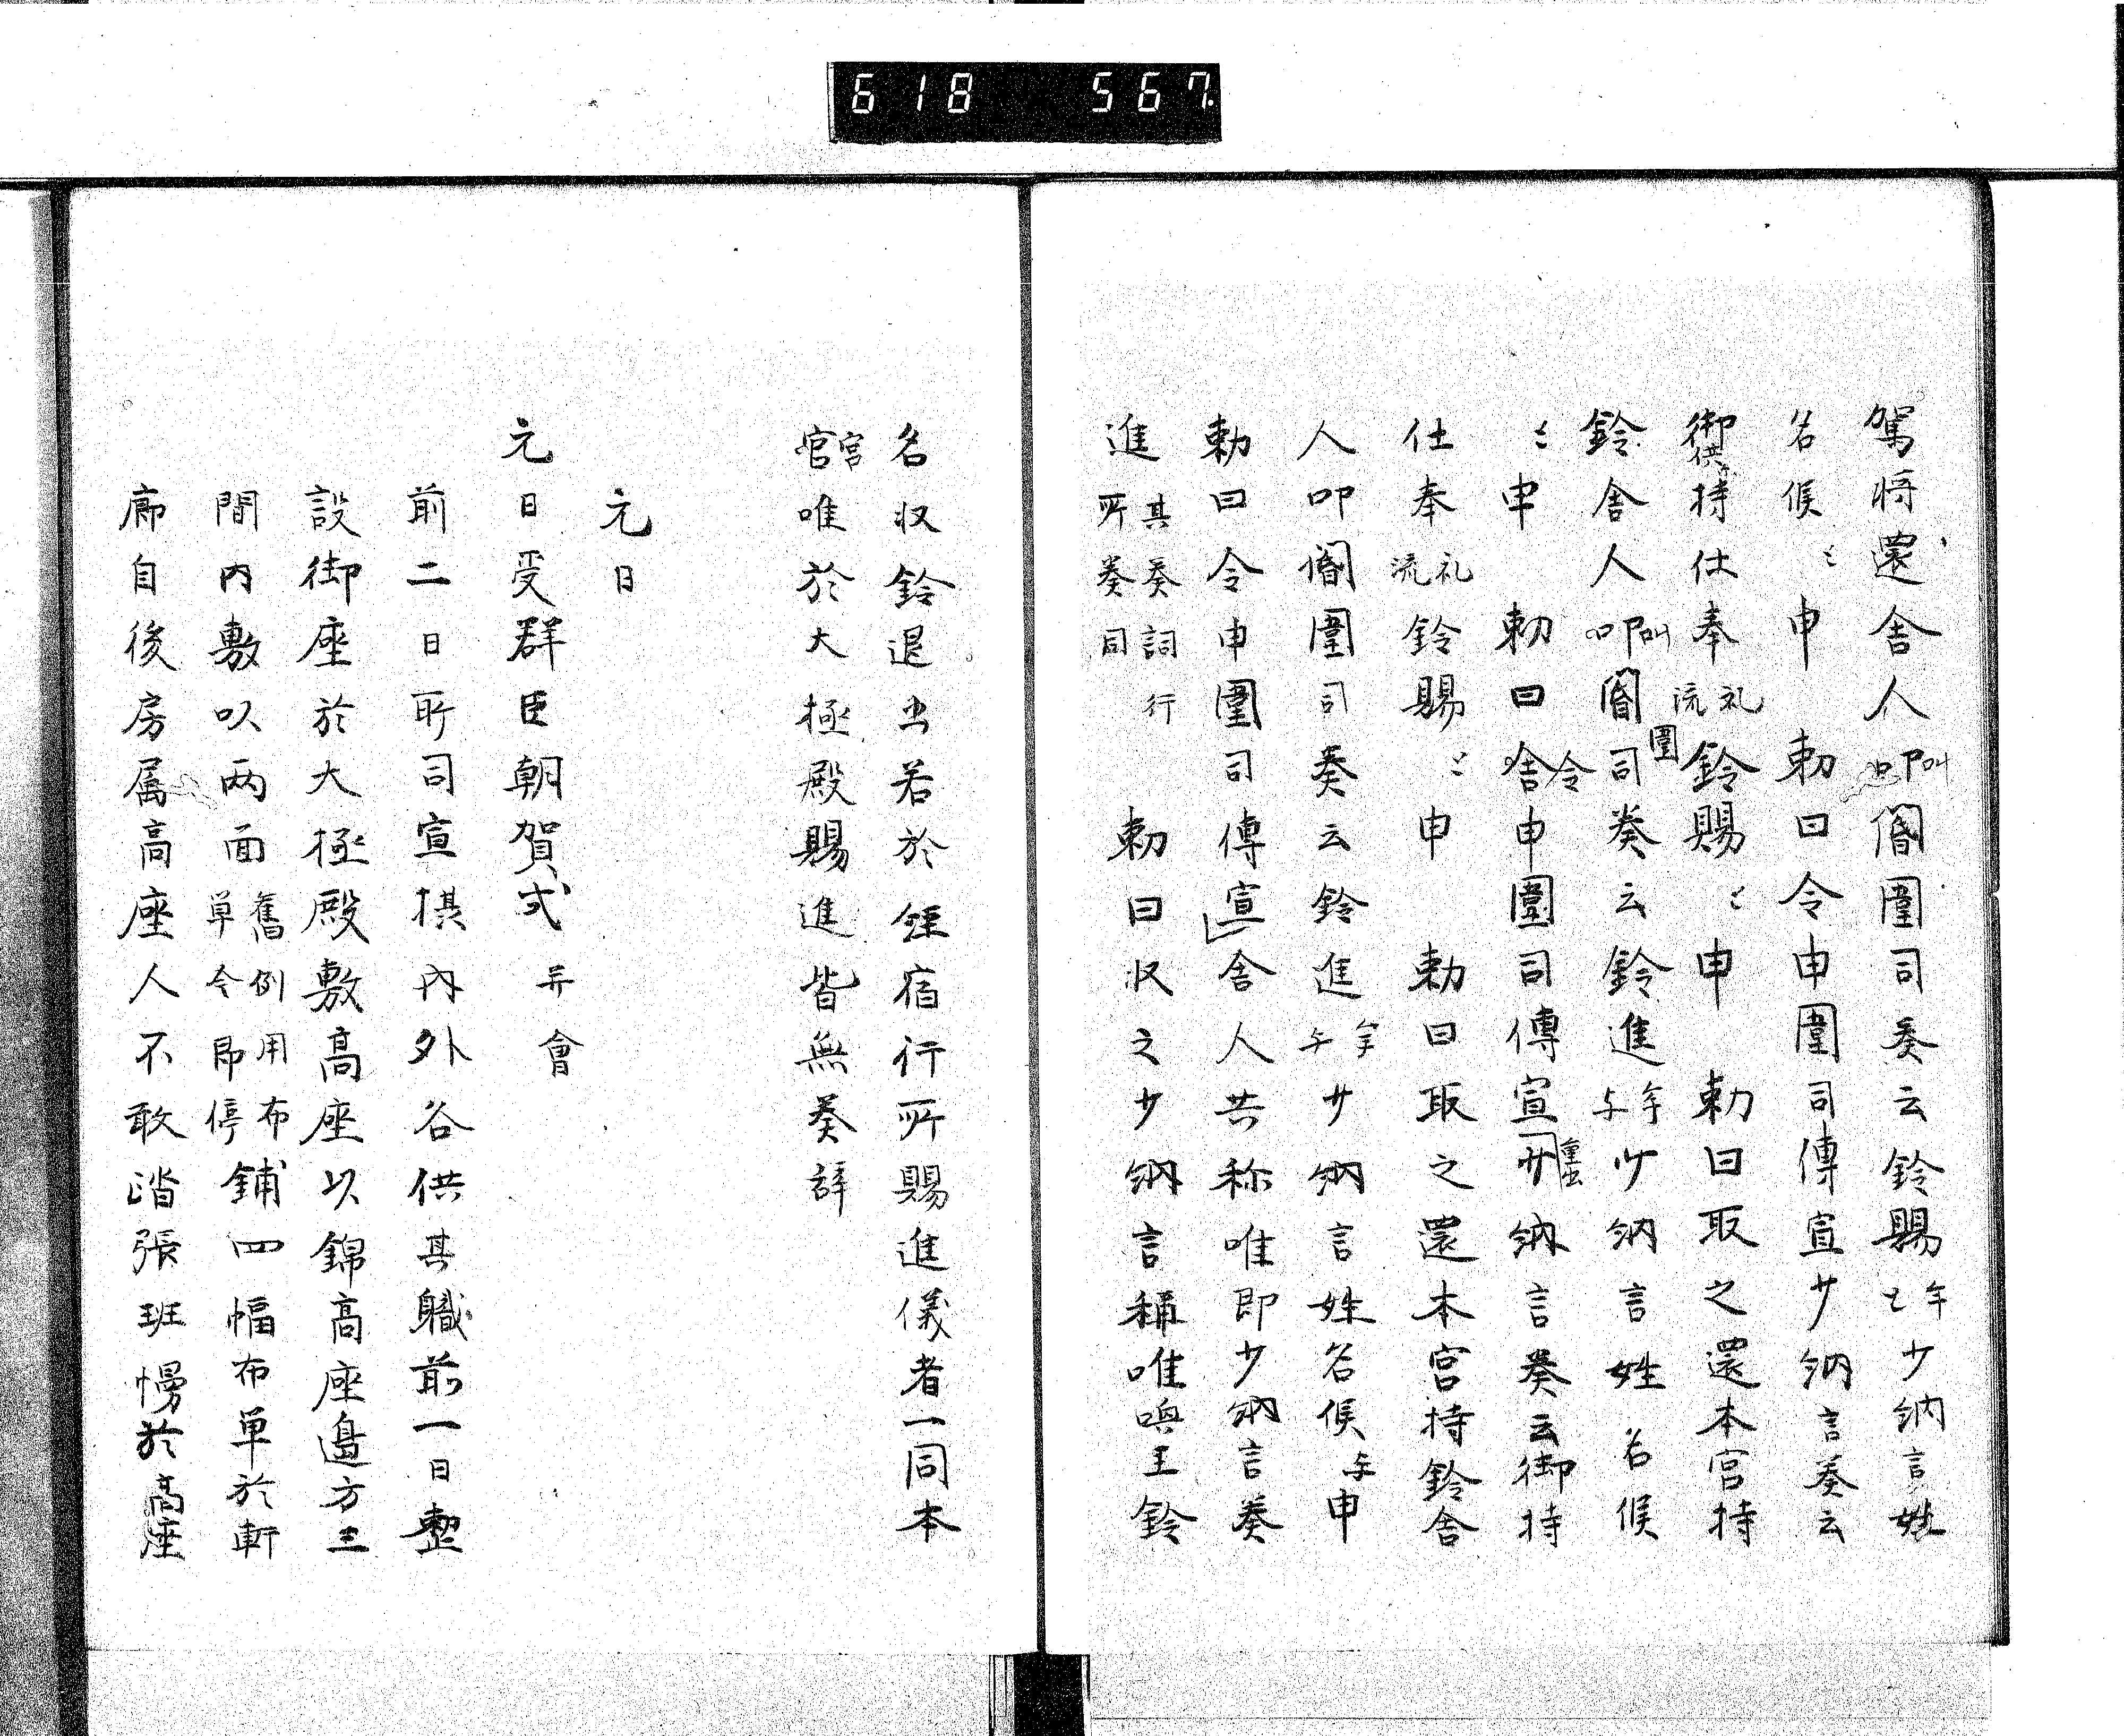 618 567
駕将還舎人叩叫閽圍司奏云鈴賜牟止少納言姓
名候〻申勅曰令申圍司傳宣少納言奏云
御供尓持仕奉礼流鈴賜〻申勅曰取之還本宮持
鈴舎人叩叫閽圍司奏云鈴進牟与少納言姓名候
〻申勅曰舎令申圍司傳宣納言奏云御持
仕奉礼流鈴賜〻申勅曰取之還本宮持鈴舎
人叩閽圍司奏云鈴進牟与少納言姓名候与申
勅曰令申圍司傳宣舎人共称唯即少納言奏
進其奏詞行所奏同勅曰収之少納言稱唯喚主鈴
名収鈴退出若於経宿行所賜進儀者一同本
官宮唯於大極殿賜進皆無奏辞
元日
元日受群臣朝賀式并會
前二日所司宣摂内外各供其職前一日整
設御座於大極殿敷高座以錦高座邊方三
間内敷以両面舊例用布単今即停鋪四幅布単於軒
廊自後房属高座人不敢蹈張班幔於高座